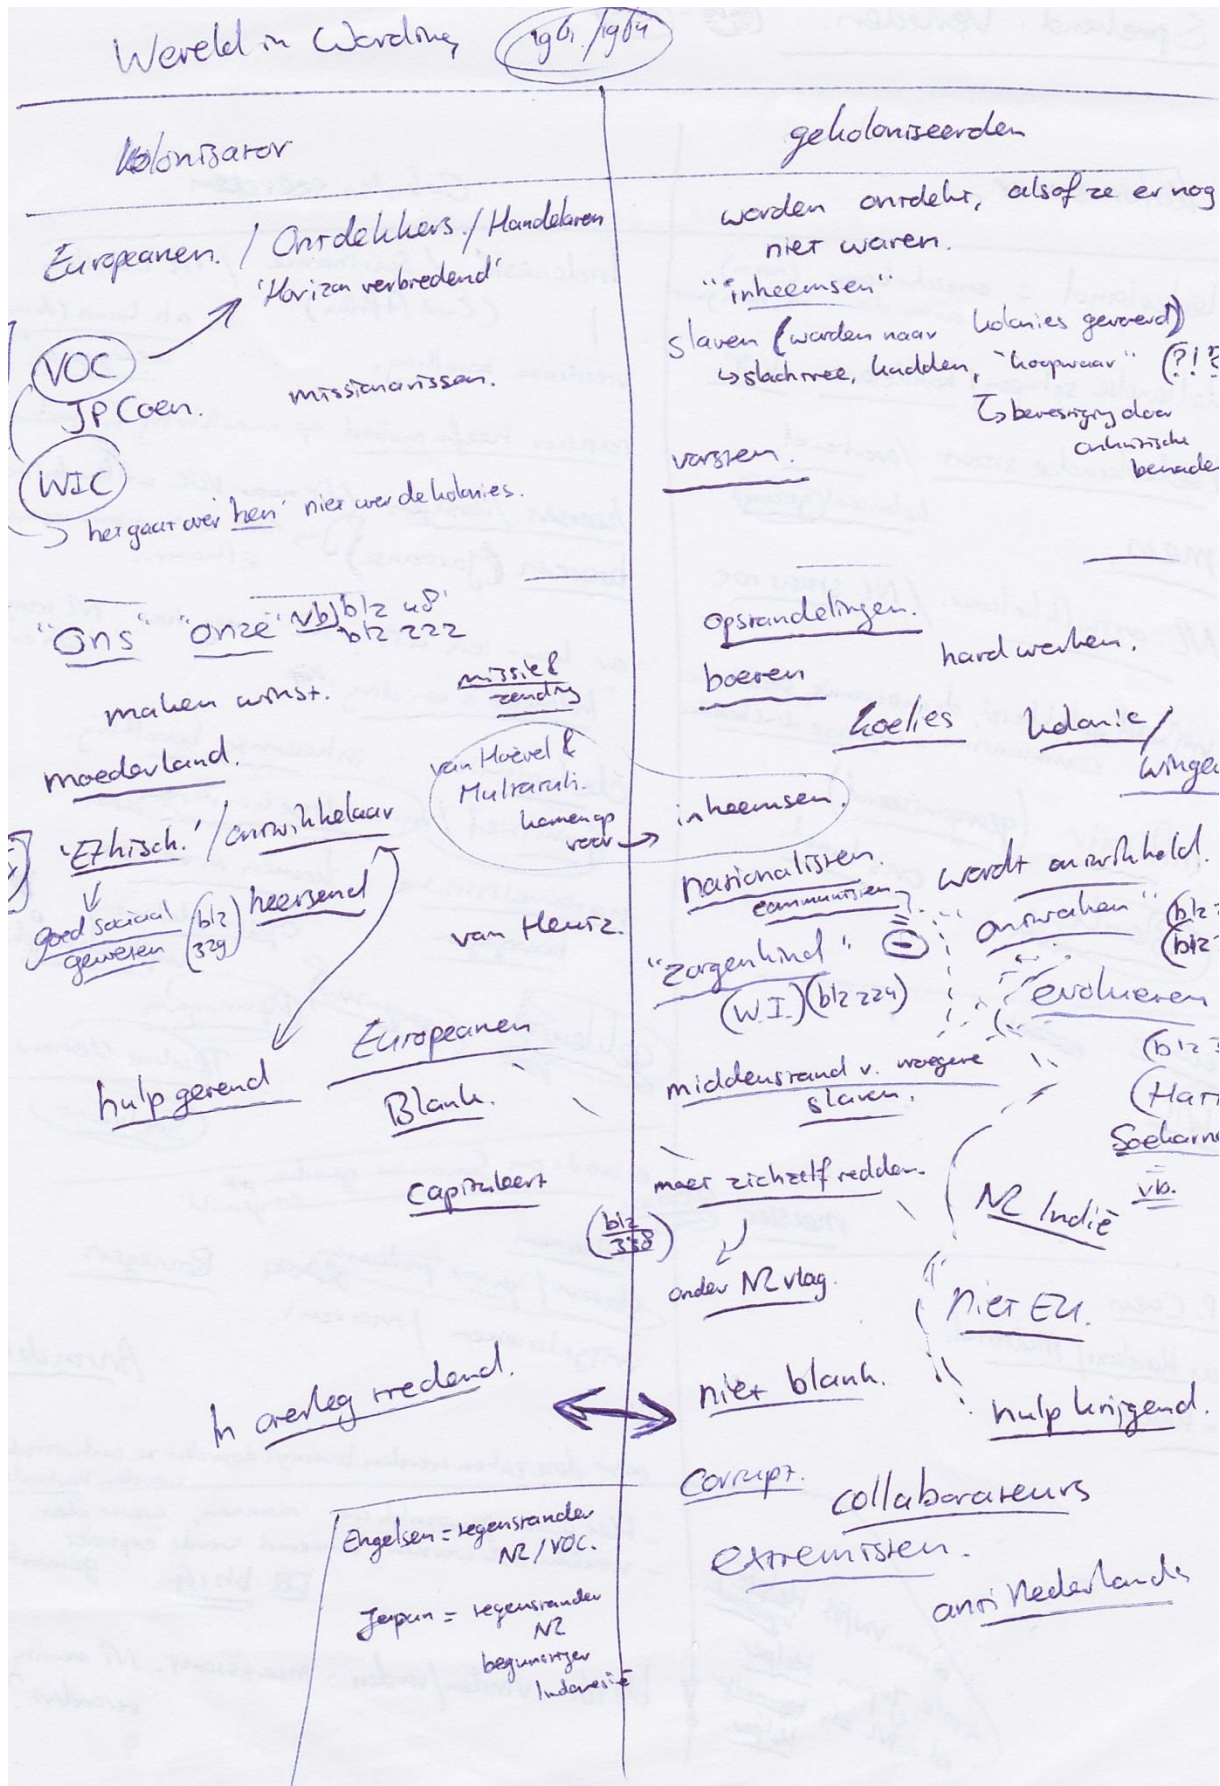 Wereld in Wording 1961/1964
kolonisator
Europeanen / Ontdekkers / Handelaren
'Horizon verbredend'
VOC
JP Coen.
missionarissen.
WIC
het gaat over 'hen' niet over de kolonies.
"Ons" "onze" vb blz 48
blz 222
maken winst.
missie &
zending
moederland.
van Hoëvel &
Multatuli.
komen op
voor
'Ethisch.' / ontwikkelaar
goed sociaal
geweten (blz
329)
heersend
van Heutz.
Europeanen
hulp gevend
Blank.
Capituleert
In overleg tredend.
Engelsen = tegenstander
NL/VOC.
Japan = tegenstander
NL
begunstiger
Indonesië
gekoloniseerden
worden ontdekt, alsof ze er nog
niet waren.
"inheemsen"
slaven (worden naar kolonies gevoerd)
slachtvee, kudden, "koopwaar" (?!?
bevestiging door
onkritische
benader
vorsten.
opstandelingen.
boeren
hard werken.
koelies
kolonie/
winge
inheemsen.
nationalisten.
communisten
wordt ontwikkeld.
"ontwaken" (blz
(blz
"zorgenkind"
(W.I.) (blz 224)
evolueren
(blz 3
middenstand v. vroegere
slaven.
(Hatt
Soekarno
vb.
moet zichzelf redden.
NL Indië
(blz
338)
onder NL vlag.
niet EU.
niet blank.
hulp krijgend.
Corrupt.
collaborateurs
extremisten.
anti Nederlands